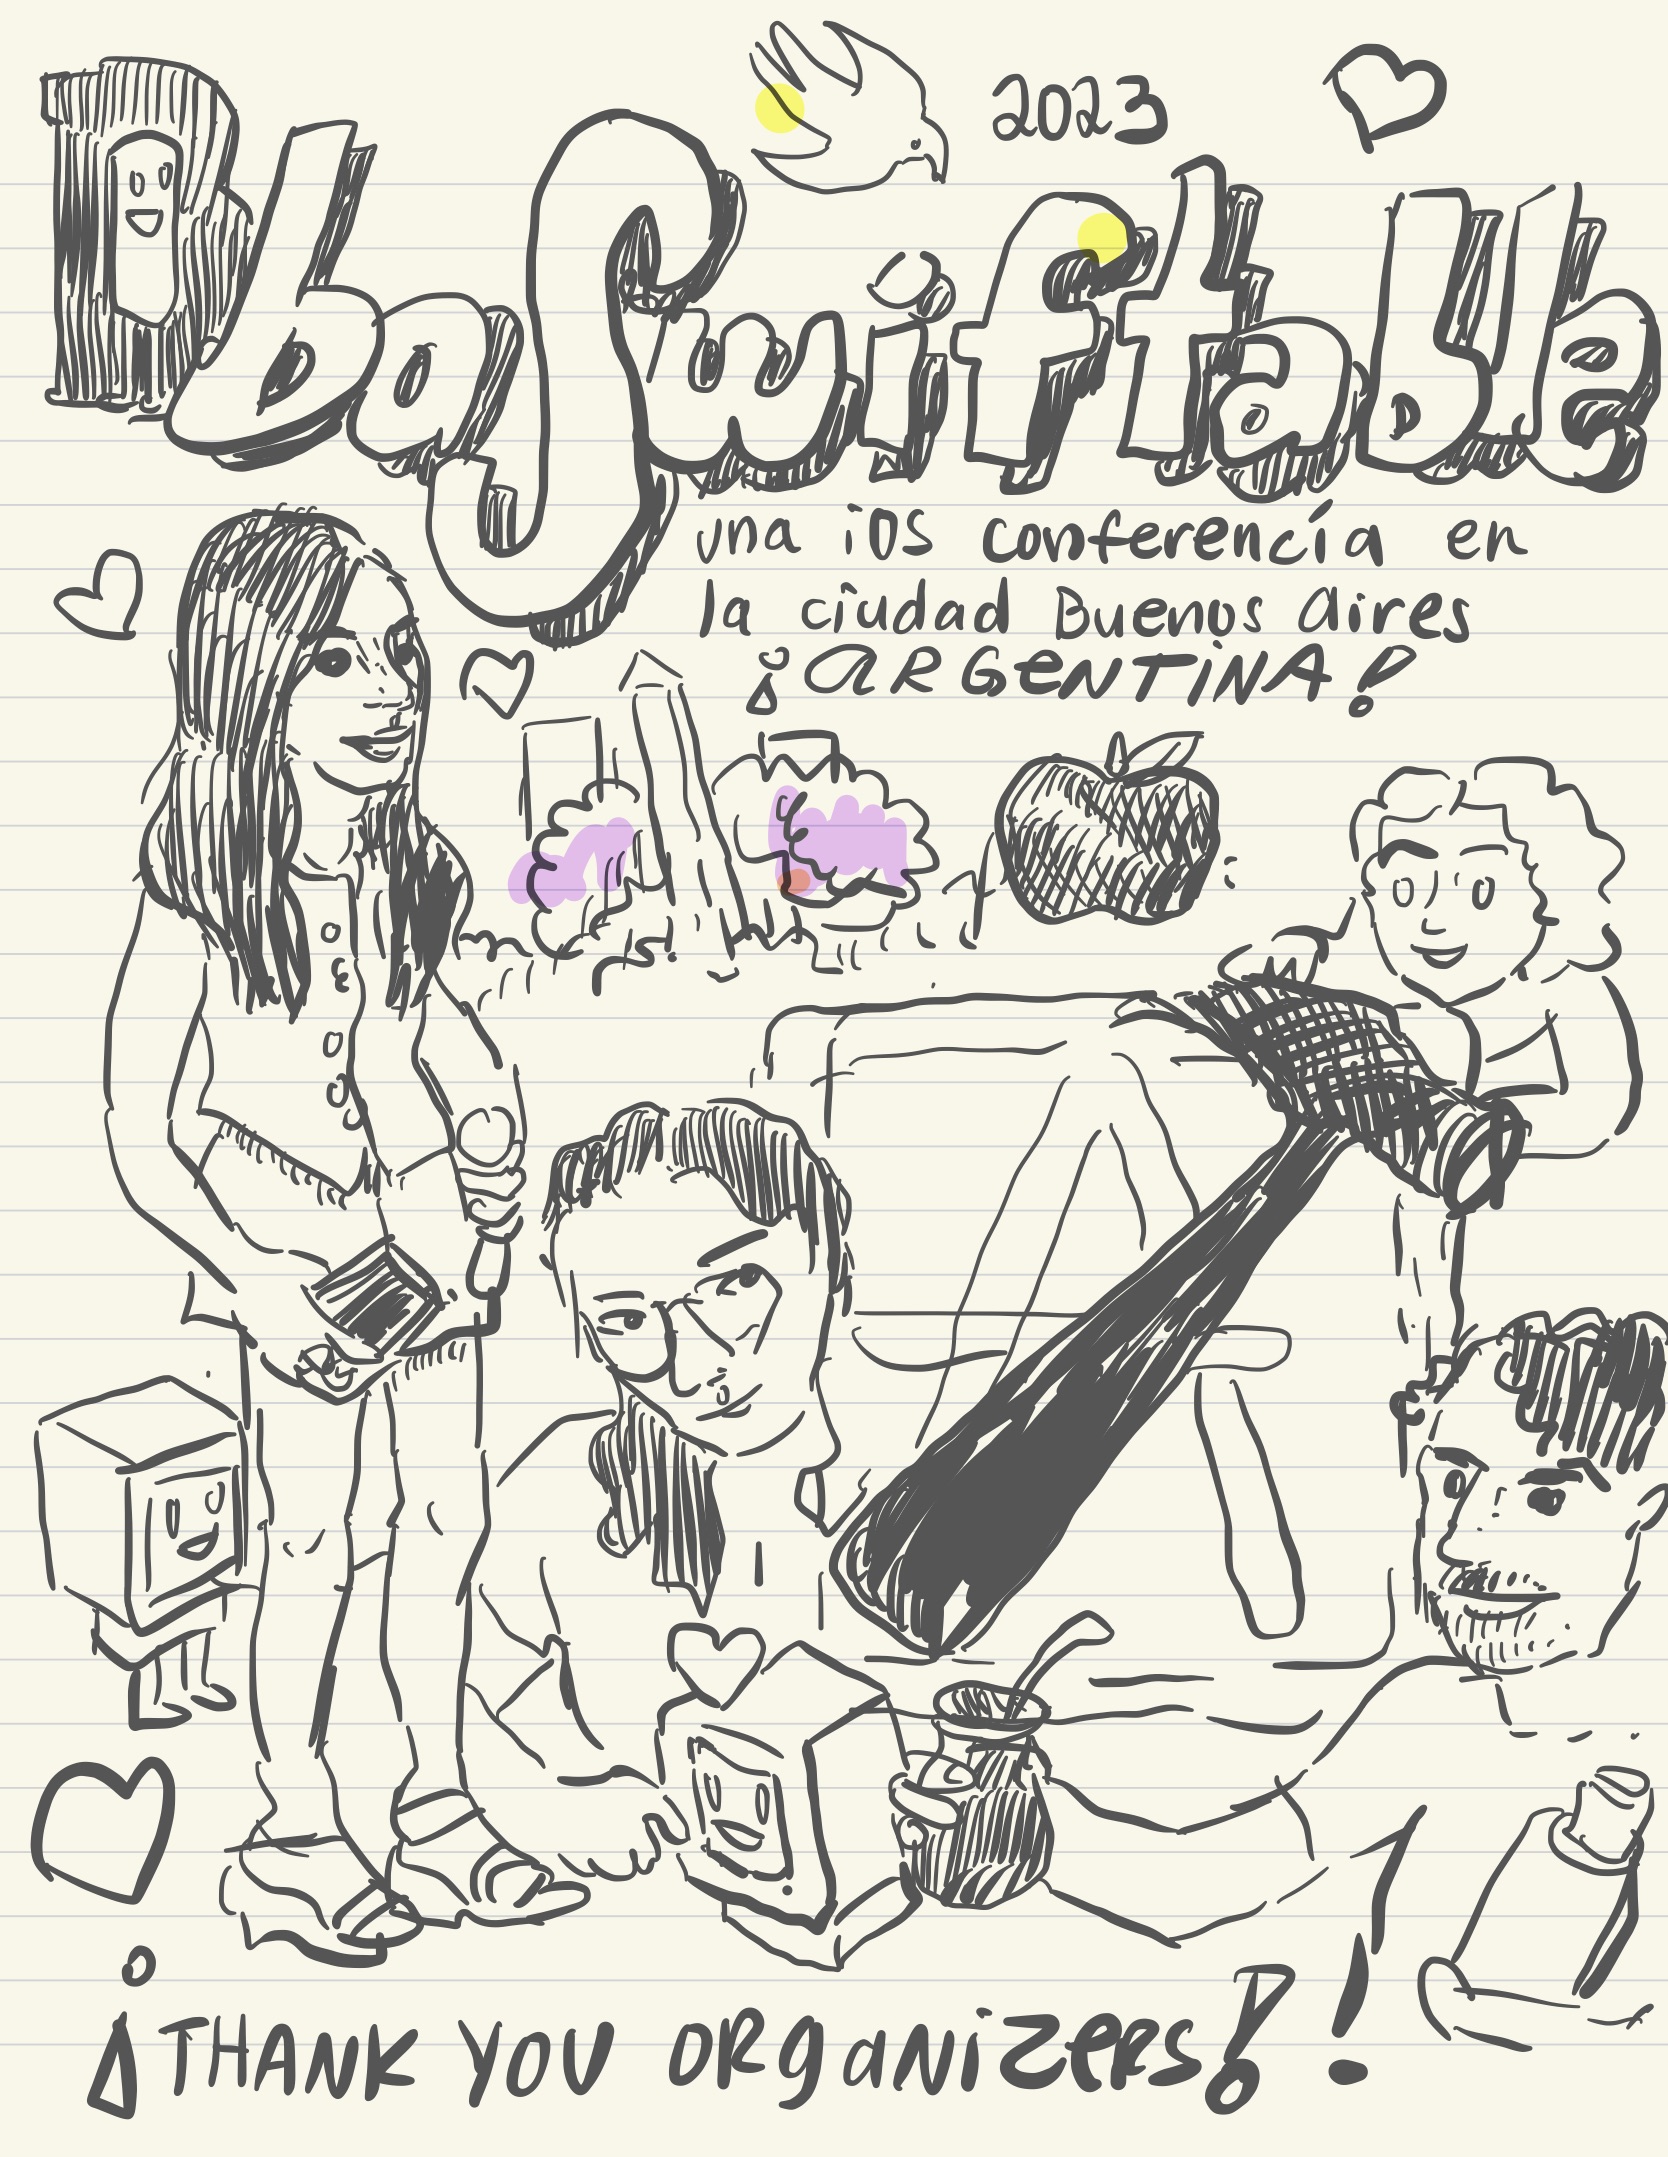 2023
PlbaSwiftable
una iOS conferencía en
la ciudad Buenos aires
¡ARGENTINA!
¡THANK YOU ORgaNiZeRS!!